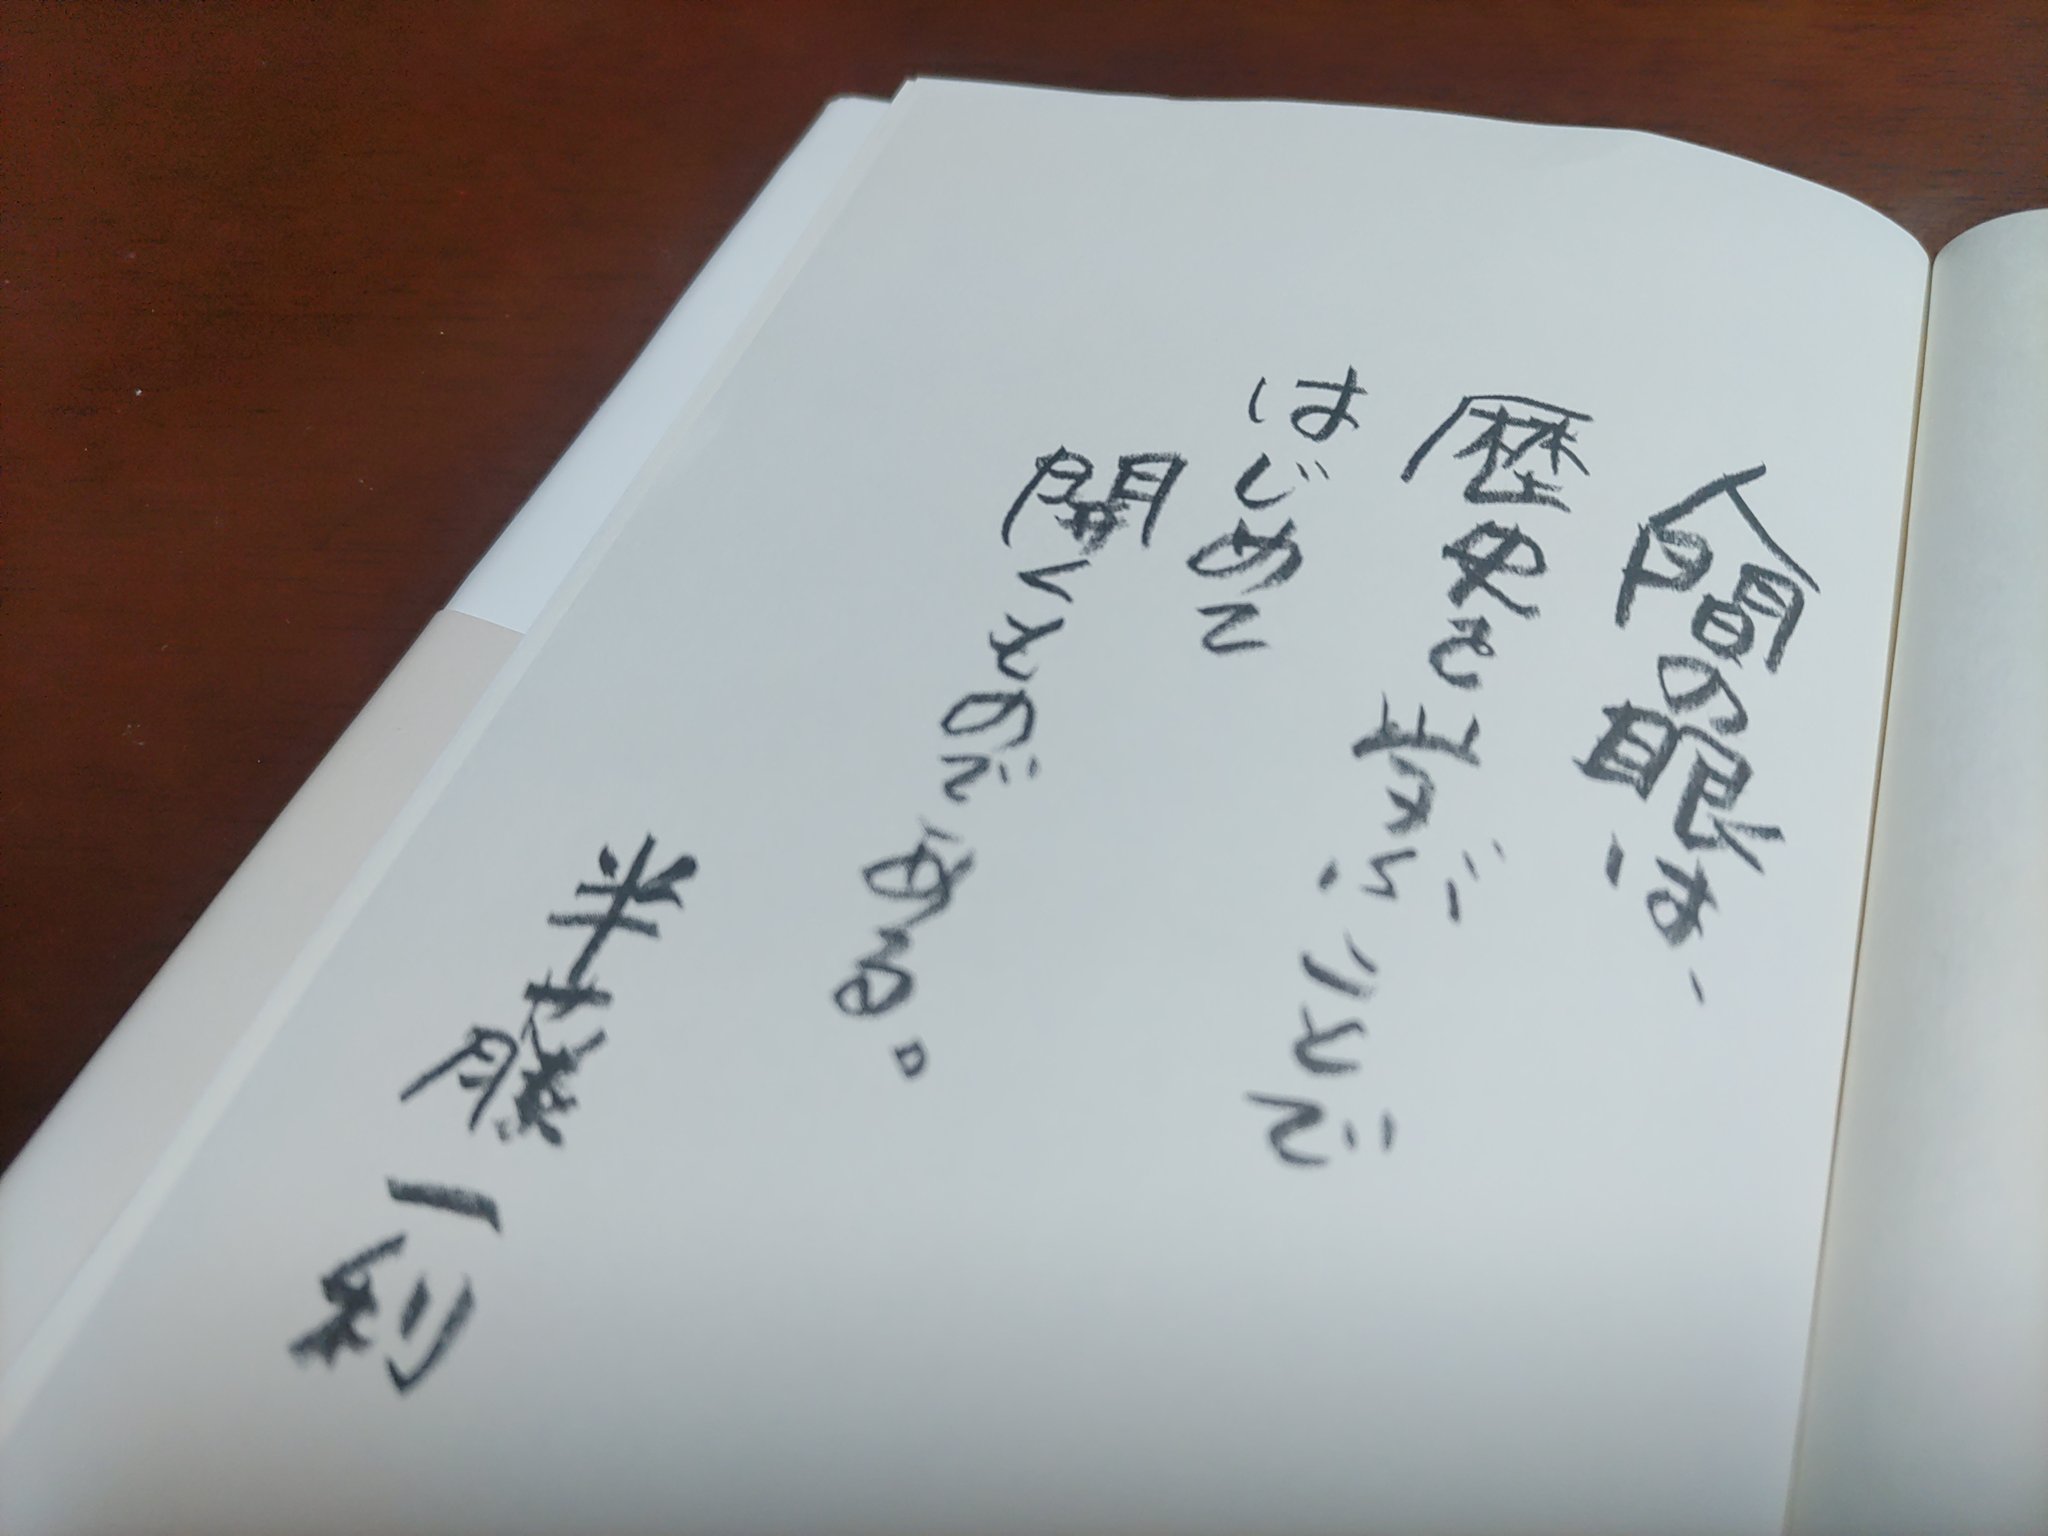 人間の眼は、
歴史を学ぶことで
はじめて
開くものである。
半藤一利